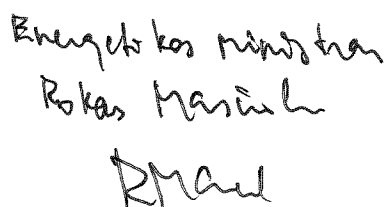 Energetikos ministras
Rokas Masiulis